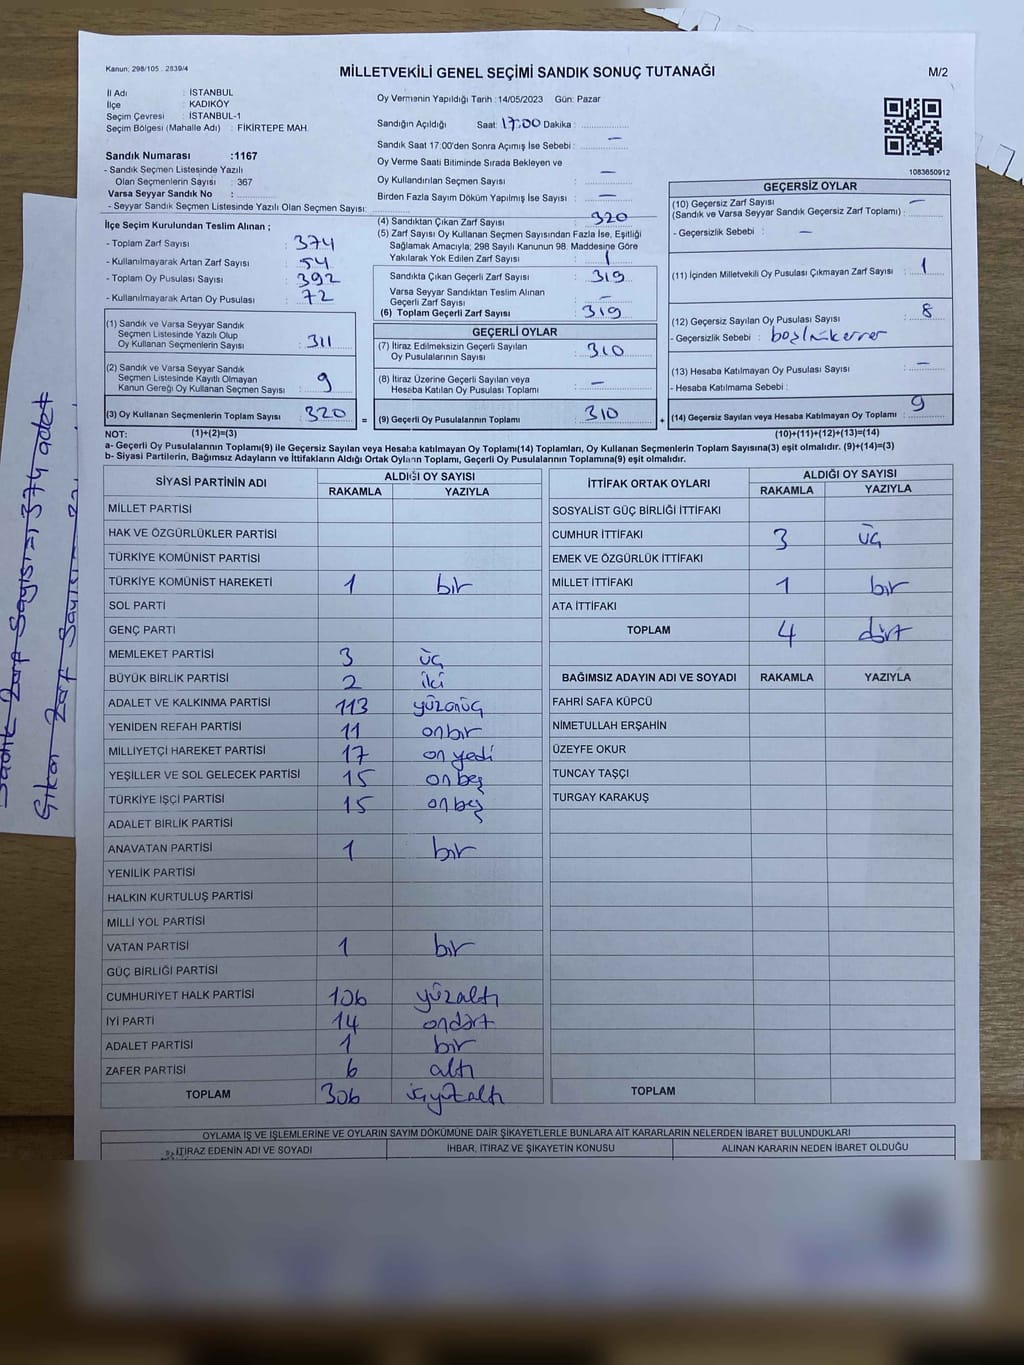 Kanun: 298/105 . 2839/4
MİLLETVEKİLİ GENEL SEÇİMİ SANDIK SONUÇ TUTANAĞI
M/2
İl Adı : İSTANBUL
İlçe : KADIKÖY
Seçim Çevresi : İSTANBUL-1
Seçim Bölgesi (Mahalle Adı) : FİKİRTEPE MAH.
Sandık Numarası :1167
- Sandık Seçmen Listesinde Yazılı
Olan Seçmenlerin Sayısı : 367
Varsa Seyyar Sandık No :
- Seyyar Sandık Seçmen Listesinde Yazılı Olan Seçmen Sayısı:
Oy Vermenin Yapıldığı Tarih : 14/05/2023 Gün: Pazar
Sandığın Açıldığı Saat: 17:00 Dakika :
Sandık Saat 17:00'den Sonra Açımış İse Sebebi : —
Oy Verme Saati Bitiminde Sırada Bekleyen ve
Oy Kullandırılan Seçmen Sayısı : —
Birden Fazla Sayım Döküm Yapılmış İse Sayısı : —
1083650912
İlçe Seçim Kurulundan Teslim Alınan ;
- Toplam Zarf Sayısı : 374
- Kullanılmayarak Artan Zarf Sayısı : 54
- Toplam Oy Pusulası Sayısı : 392
- Kullanılmayarak Artan Oy Pusulası : 72
(1) Sandık ve Varsa Seyyar Sandık
Seçmen Listesinde Yazılı Olup
Oy Kullanan Seçmenlerin Sayısı : 311
(2) Sandık ve Varsa Seyyar Sandık
Seçmen Listesinde Kayıtlı Olmayan
Kanun Gereği Oy Kullanan Seçmen Sayısı : 9
(3) Oy Kullanan Seçmenlerin Toplam Sayısı : 320
(1)+(2)=(3)
(4) Sandıktan Çıkan Zarf Sayısı : 320
(5) Zarf Sayısı Oy Kullanan Seçmen Sayısından Fazla İse, Eşitliği
Sağlamak Amacıyla; 298 Sayılı Kanunun 98. Maddesine Göre
Yakılarak Yok Edilen Zarf Sayısı : 1
Sandıkta Çıkan Geçerli Zarf Sayısı : 319
Varsa Seyyar Sandıktan Teslim Alınan
Geçerli Zarf Sayısı : —
(6) Toplam Geçerli Zarf Sayısı : 319
GEÇERLİ OYLAR
(7) İtiraz Edilmeksizin Geçerli Sayılan
Oy Pusulalarının Sayısı : 310
(8) İtiraz Üzerine Geçerli Sayılan veya
Hesaba Katılan Oy Pusulası Toplamı : —
= (9) Geçerli Oy Pusulalarının Toplamı : 310 +
GEÇERSİZ OYLAR
(10) Geçersiz Zarf Sayısı
(Sandık ve Varsa Seyyar Sandık Geçersiz Zarf Toplamı) : —
- Geçersizlik Sebebi : —
(11) İçinden Milletvekili Oy Pusulası Çıkmayan Zarf Sayısı : 1
(12) Geçersiz Sayılan Oy Pusulası Sayısı : 8
- Geçersizlik Sebebi :
(13) Hesaba Katılmayan Oy Pusulası Sayısı : —
- Hesaba Katılmama Sebebi :
(14) Geçersiz Sayılan veya Hesaba Katılmayan Oy Toplamı : 9
(10)+(11)+(12)+(13)=(14)
NOT:
a- Geçerli Oy Pusulalarının Toplamı(9) ile Geçersiz Sayılan veya Hesaba katılmayan Oy Toplamı(14) Toplamları, Oy Kullanan Seçmenlerin Toplam Sayısına(3) eşit olmalıdır. (9)+(14)=(3)
b- Siyasi Partilerin, Bağımsız Adayların ve İttifakların Aldığı Ortak Oyların Toplamı, Geçerli Oy Pusulalarının Toplamına(9) eşit olmalıdır.
SİYASİ PARTİNİN ADI ALDIĞI OY SAYISI
RAKAMLA YAZIYLA
MİLLET PARTİSİ
HAK VE ÖZGÜRLÜKLER PARTİSİ
TÜRKİYE KOMÜNİST PARTİSİ
TÜRKİYE KOMÜNİST HAREKETİ 1 bir
SOL PARTİ
GENÇ PARTİ
MEMLEKET PARTİSİ 3 üç
BÜYÜK BİRLİK PARTİSİ 2 iki
ADALET VE KALKINMA PARTİSİ 113 yüzonüç
YENİDEN REFAH PARTİSİ 11 onbir
MİLLİYETÇİ HAREKET PARTİSİ 17 on yedi
YEŞİLLER VE SOL GELECEK PARTİSİ 15 onbeş
TÜRKİYE İŞÇİ PARTİSİ 15 onbeş
ADALET BİRLİK PARTİSİ
ANAVATAN PARTİSİ 1 bir
YENİLİK PARTİSİ
HALKIN KURTULUŞ PARTİSİ
MİLLİ YOL PARTİSİ
VATAN PARTİSİ 1 bir
GÜÇ BİRLİĞİ PARTİSİ
CUMHURİYET HALK PARTİSİ 106 yüzaltı
İYİ PARTİ 14 ondört
ADALET PARTİSİ 1 bir
ZAFER PARTİSİ 6 altı
TOPLAM 306 üçyüzaltı
İTTİFAK ORTAK OYLARI ALDIĞI OY SAYISI
RAKAMLA YAZIYLA
SOSYALİST GÜÇ BİRLİĞİ İTTİFAKI
CUMHUR İTTİFAKI 3 üç
EMEK VE ÖZGÜRLÜK İTTİFAKI
MİLLET İTTİFAKI 1 bir
ATA İTTİFAKI
TOPLAM 4 dört
BAĞIMSIZ ADAYIN ADI VE SOYADI RAKAMLA YAZIYLA
FAHRİ SAFA KÜPCÜ
NİMETULLAH ERŞAHİN
ÜZEYFE OKUR
TUNCAY TAŞÇI
TURGAY KARAKUŞ
TOPLAM
OYLAMA İŞ VE İŞLEMLERİNE VE OYLARIN SAYIM DÖKÜMÜNE DAİR ŞİKAYETLERLE BUNLARA AİT KARARLARIN NELERDEN İBARET BULUNDUKLARI
İTİRAZ EDENİN ADI VE SOYADI
İHBAR, İTİRAZ VE ŞİKAYETİN KONUSU
ALINAN KARARIN NEDEN İBARET OLDUĞU
Zarf Sayısı: 374 adet
Çıkan Zarf Sayısı